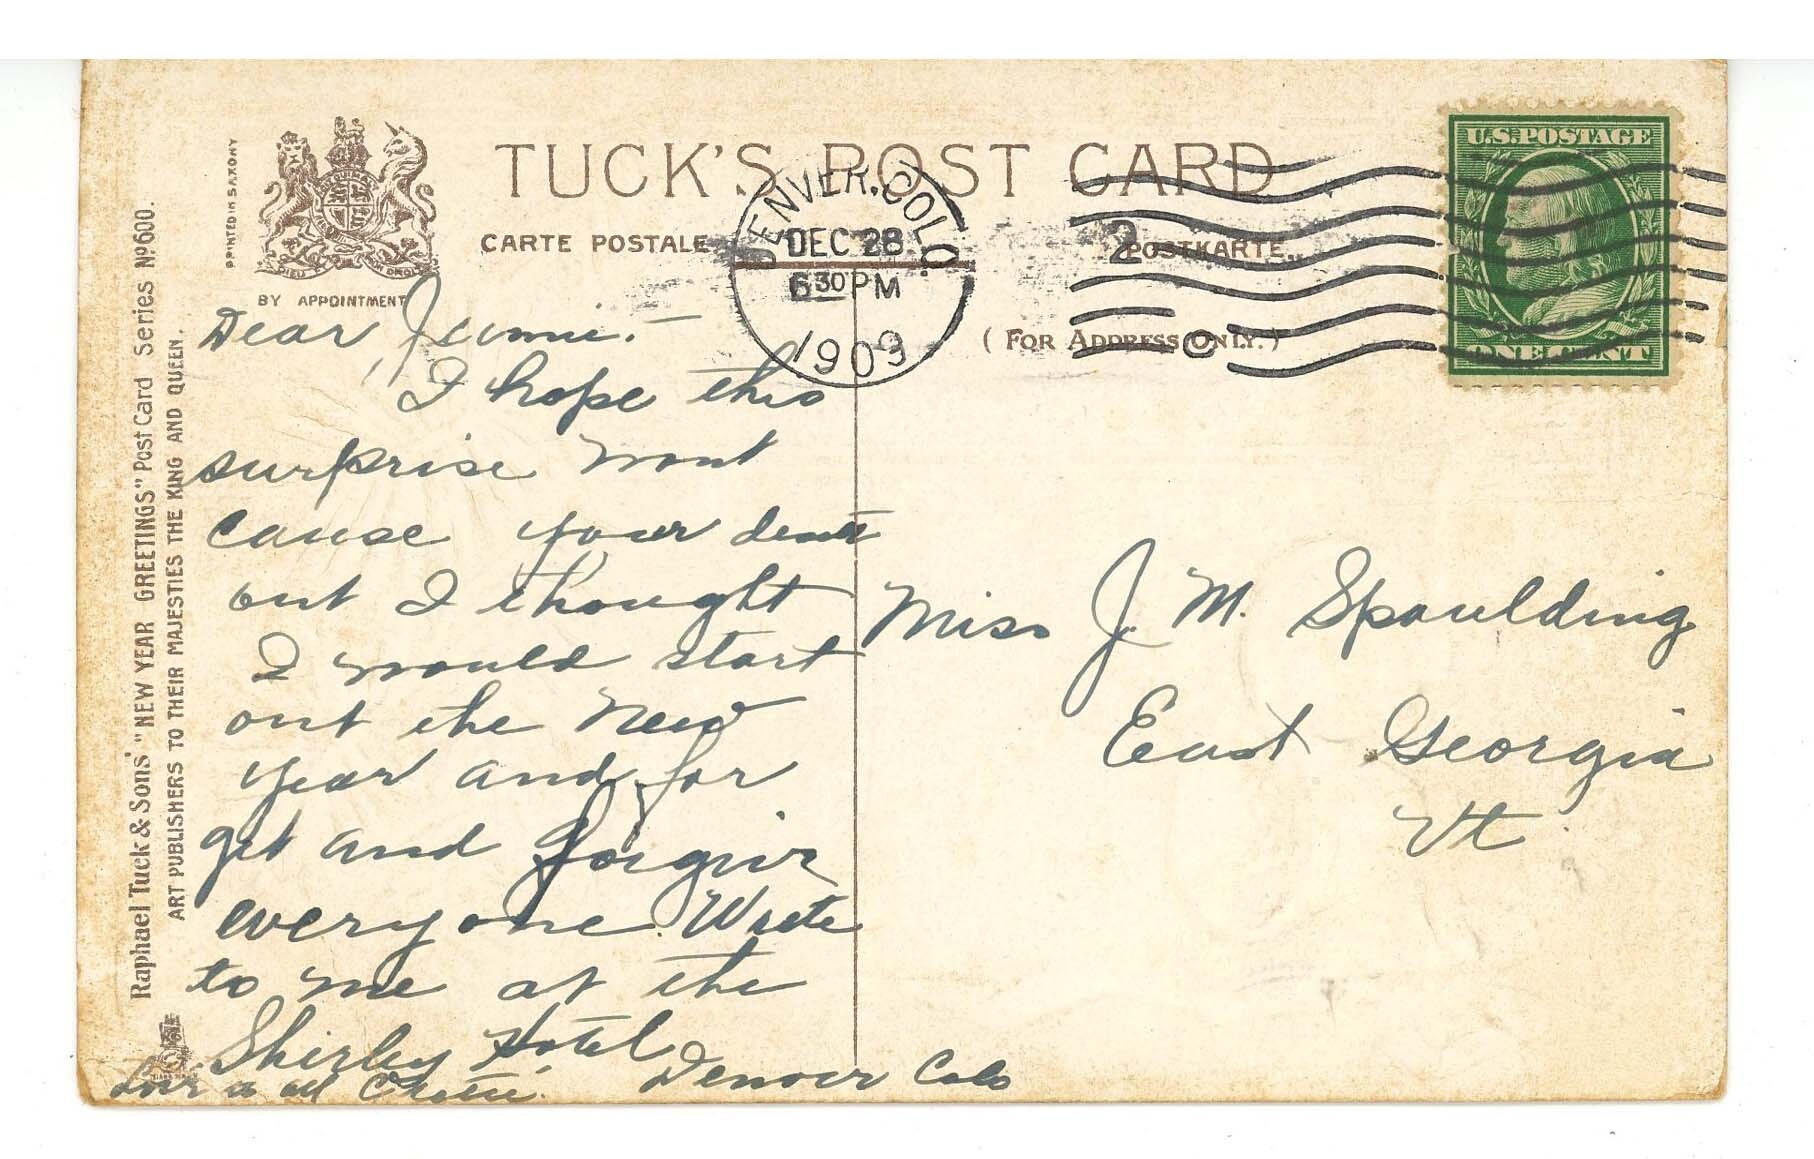 PRINTED IN SAXONY
BY APPOINTMENT
TUCK'S POST CARD
CARTE POSTALE
POSTKARTE
( FOR ADDRESS ONLY. )
DENVER, COLO.
DEC 28
6 30 PM
1909
2
U.S. POSTAGE
ONE CENT
Raphael Tuck & Sons' "NEW YEAR GREETINGS" Post Card Series No 600.
ART PUBLISHERS TO THEIR MAJESTIES THE KING AND QUEEN.
Dear Jennie. —
I hope this
surprise wont
cause your death
but I thought
I would start
out the New
year and for
get and forgive
everyone. Write
to me at the
Shirley Hotel
Denver Colo
Love to all
Miss J. M. Spaulding
East Georgia
Vt.